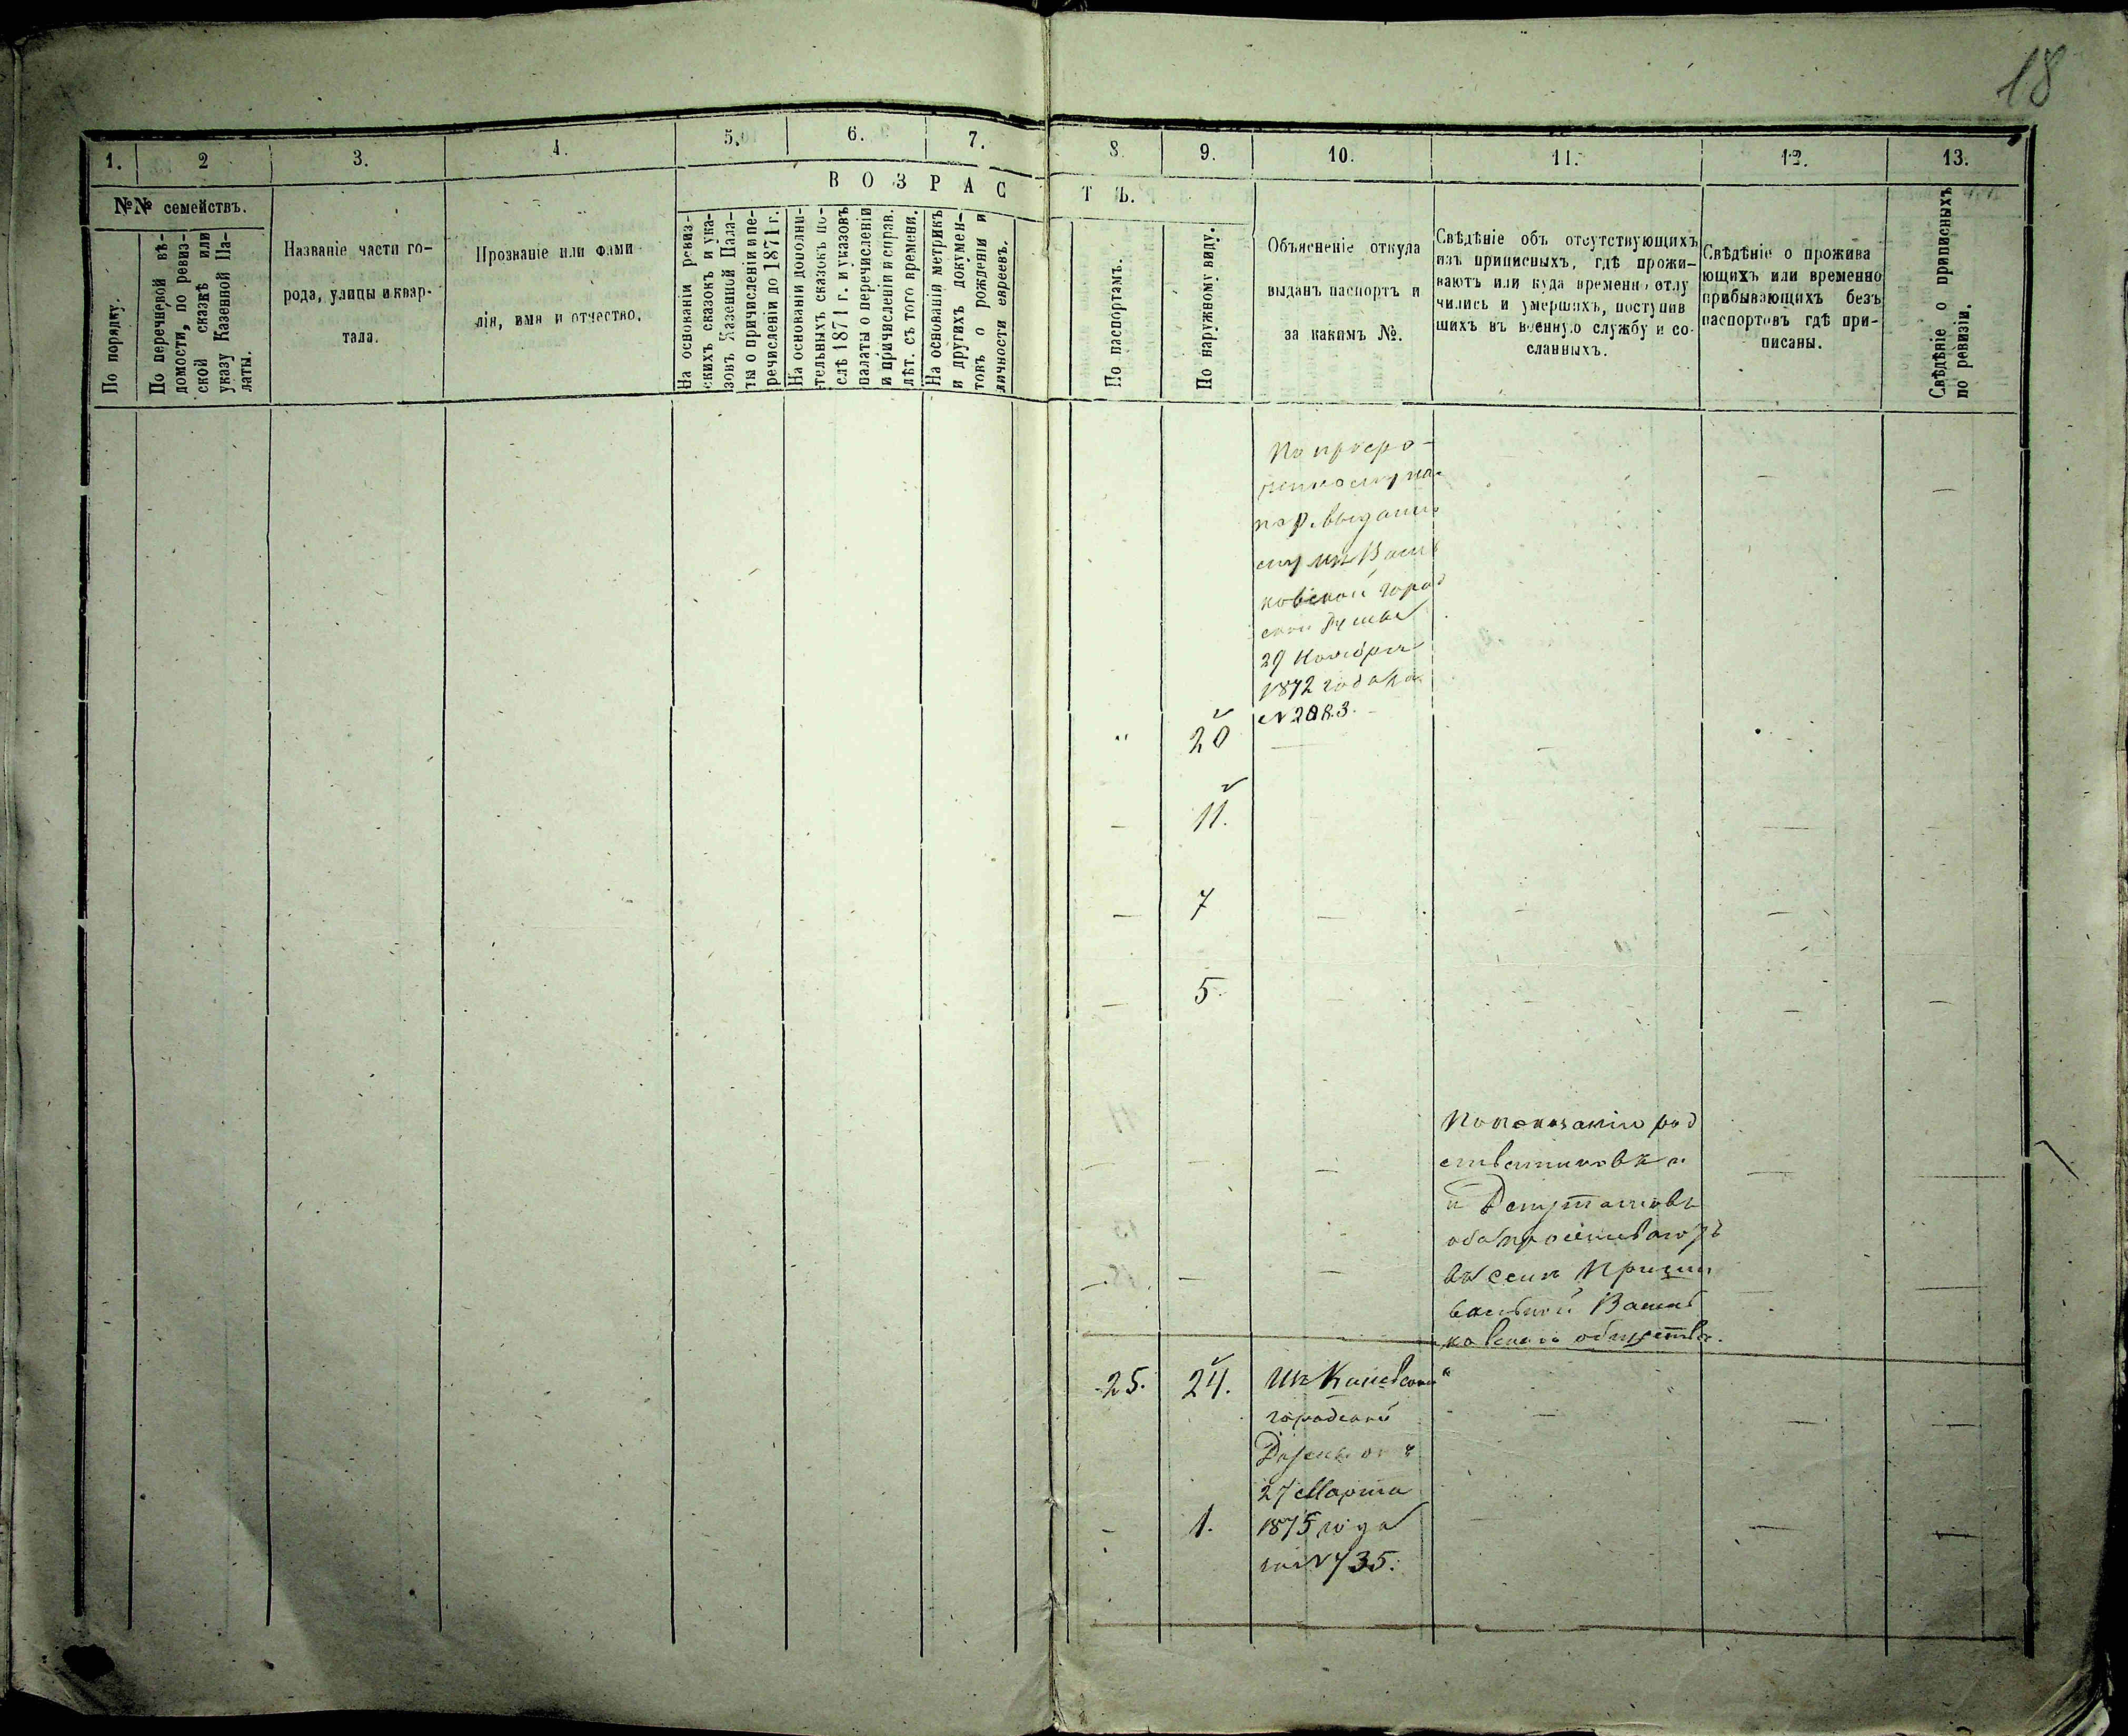 18
1. 2 3. 4. 5. 6. 7. 8. 9. 10. 11. 12. 13.
ВОЗРАСТЪ.
№№ семействъ.
По порядку.
По перечневой вѣ-
домости, по ревиз-
ской сказкѣ или
указу Казенной Па-
латы.
Названіе части го-
рода, улицы и квар-
тала.
Прозваніе или фами-
лія, имя и отчество.
На основаніи ревиз-
скихъ сказокъ и ука-
зовъ Казенной Пала-
ты о причисленіи и пе-
речисленіи до 1871 г.
На основаніи дополни-
тельныхъ сказокъ по-
слѣ 1871 г. и указовъ
палаты о перечисленіи
и причисленіи и справ.
лѣт. съ того времени.
На основаніи метрикъ
и другихъ докумен-
товъ о рожденіи и
личности евреевъ.
По паспортамъ.
По наружному виду.
Объясненіе откуда
выданъ паспортъ и
за какимъ №.
Свѣдѣніе объ отсутствующихъ
изъ приписныхъ, гдѣ прожи-
ваютъ или куда временно отлу
чились и умершихъ, поступив
шихъ въ военную службу и со-
сланныхъ.
Свѣдѣніе о прожива
ющихъ или временно
прибывающихъ безъ
паспортовъ гдѣ при-
писаны.
Свѣдѣніе о приписныхъ
по ревизіи.
По просро-
ченному пас
порт. выданно
му изъ Василь
ковской Город
ской Думы
29 Ноября
1872 года за
№ 2083.
" 20
- 11.
- 7
- 5.
По показанію род
ственниковъ
и Депутатовъ
оба проживаютъ
въ
Василь
ковскаго общества.
25. 24. Изъ Кіевской "
городской
Думы отъ
27 Марта
- 1. 1875 года
за № 735.